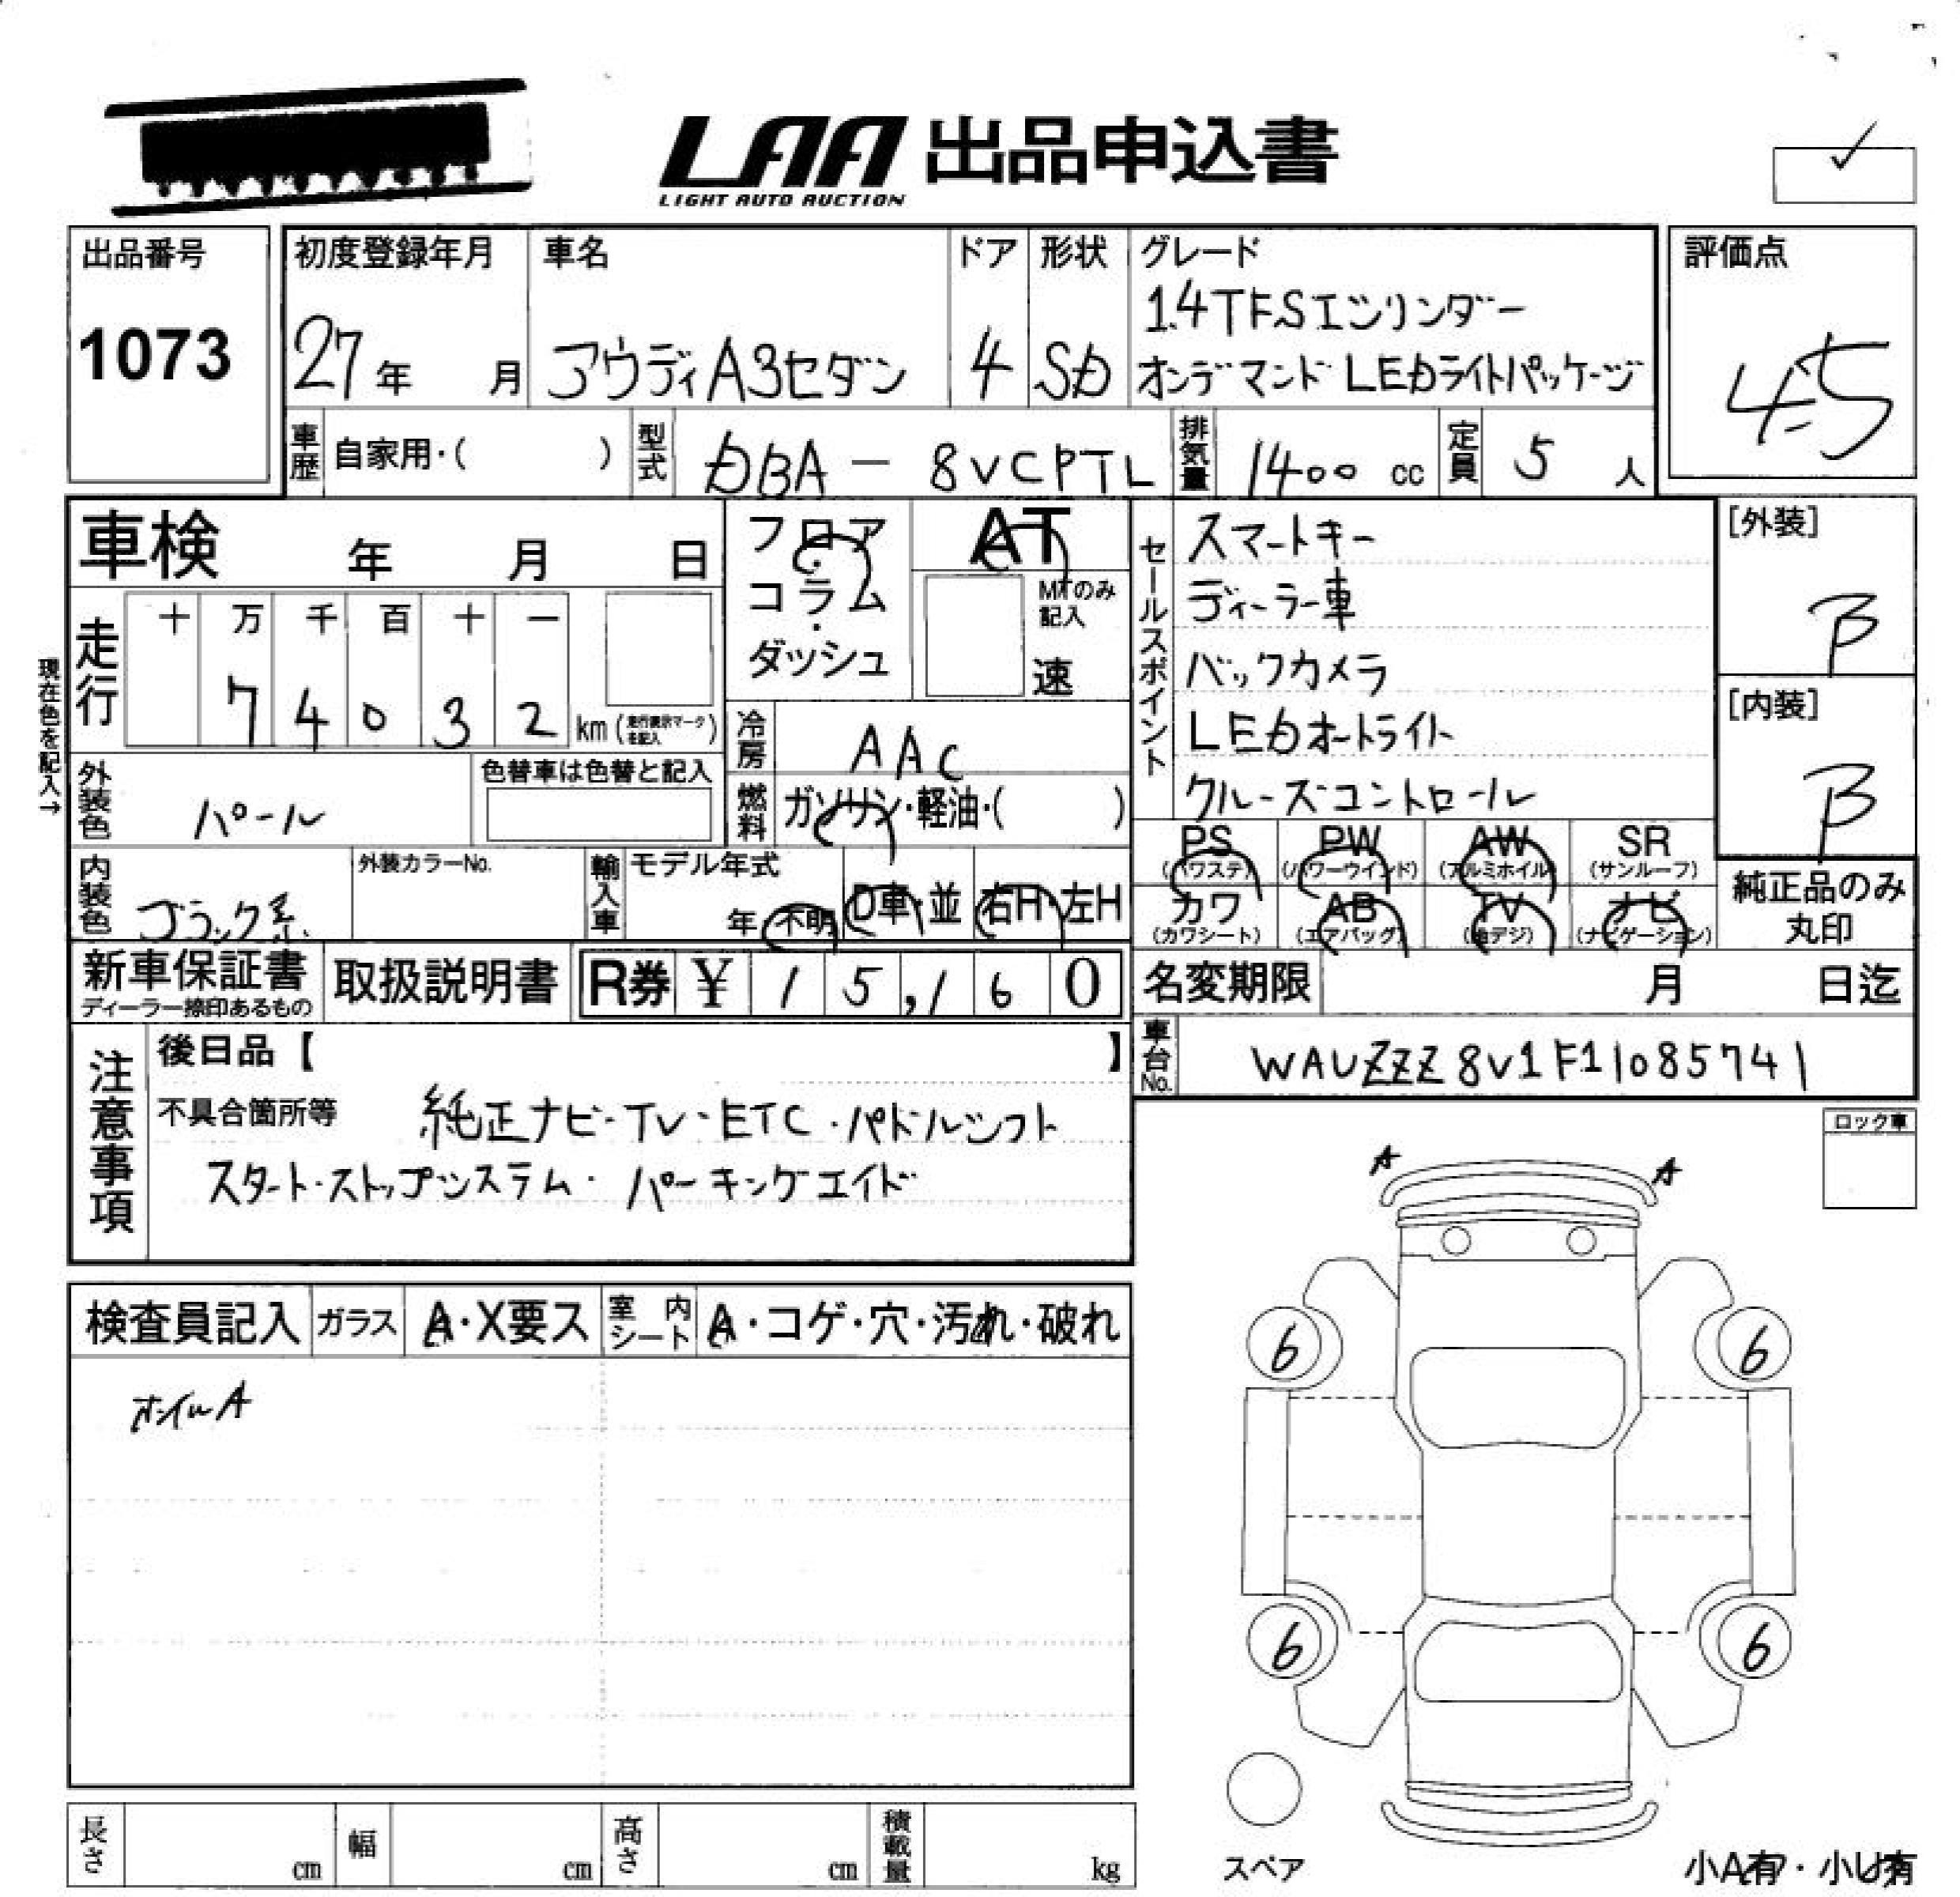 LAA 出品申込書
LIGHT AUTO AUCTION
出品番号
1073
初度登録年月
27年 月
車名
アウディA3セダン
ドア
4
形状
SD
グレード
1.4TFSIシリンダー
オンデマンド LEDライトパッケージ
評価点
4.5
車歴 自家用・( )
型式 DBA - 8VCPTL
排気量 1400 cc
定員 5 人
車検 年 月 日
走行
十 万 千 百 十 一
7 4 0 3 2 km
現在色を記入→
フロア・コラム・ダッシュ
AT
MTのみ記入
速
冷房 AAC
燃料 ガソリン・軽油・( )
外装色 パール
色替車は色替と記入
内装色 ブラック系
外装カラーNo.
輸入車 モデル年式
年・不明 D車・並 右H・左H
セールスポイント
スマートキー
ディーラー車
バックカメラ
LEDオートライト
クルーズコントロール
[外装]
B
[内装]
B
PS (パワステ) PW (パワーウインド) AW (アルミホイル) SR (サンルーフ)
カワ (カワシート) AB (エアバッグ) TV (地デジ) ナビ (ナビゲーション)
純正品のみ
丸印
新車保証書
ディーラー捺印あるもの
取扱説明書
R券 ¥ 15,160
名変期限 月 日迄
車台No. WAUZZZ8V1F1085741
注意事項
後日品【 】
不具合箇所等 純正ナビ・TV・ETC・パドルシフト
スタート・ストップシステム・パーキングエイド
ロック車
A A
検査員記入 ガラス A・X要ス 室内シート A・コゲ・穴・汚れ・破れ
ホイルA
6 6
6 6
スペア
小A有・小U有
長さ cm 幅 cm 高さ cm 積載量 kg